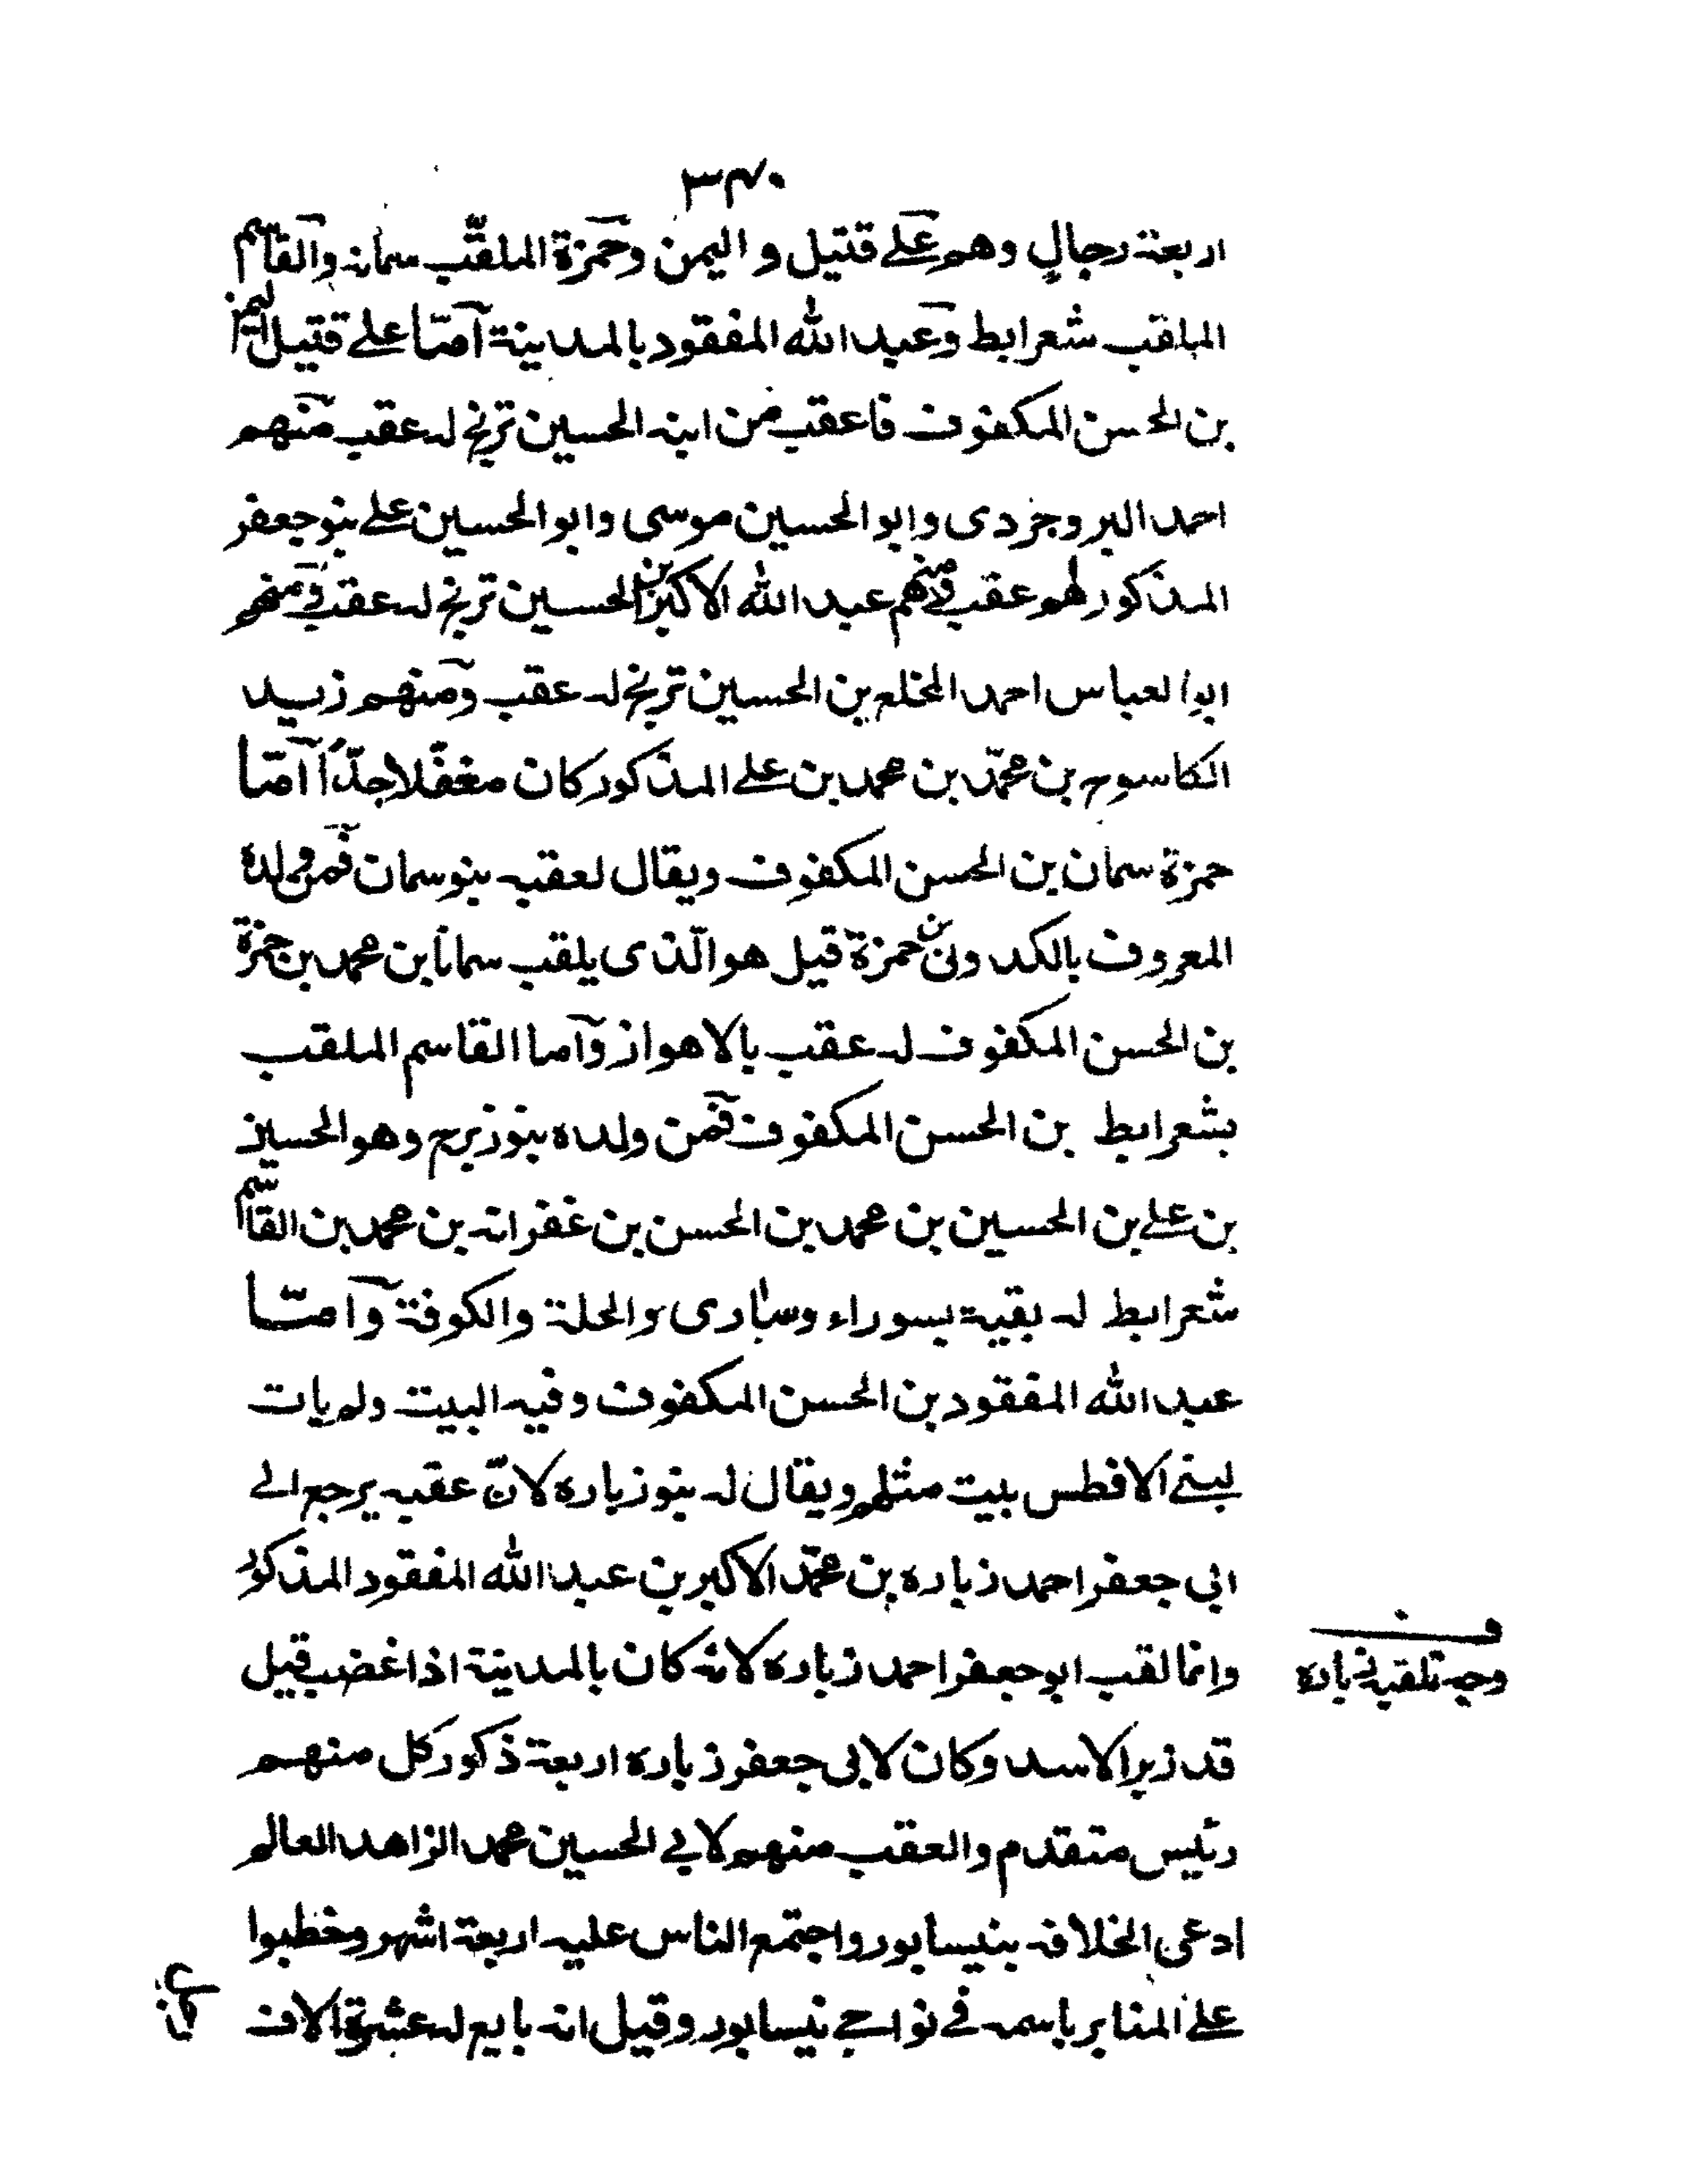 ٣٤٠
اربعة رجال وهم علے قتيل و اليمن وحمزة الملقّب سمانه والقاسم
الملقب شعرابط وعبد الله المفقود بالمدينة آمّا علے قتيل اليمن
بن الحسن المكفوف فاعقب من ابنه الحسين ترنج له عقب منهم
احمد البروجردى وابو الحسين موسى وابو الحسين علے بنو جعفر
المذكور لهم عقب ومنهم عبد الله الاكبر بن الحسين ترنج له عقب ومنهم
ابو العباس احمد المخلع بن الحسين ترنج له عقب ومنهم زيد
الكاسوح بن محمّد بن محمد بن علے المذكور كان مغفّلا جدّاً آمّا
حمزة سمان بن الحسن المكفوف ويقال لعقبه بنو سمان فمن ولده
المعروف بالكدون بن حمزة قيل هو الّذى يلقب سمانا بن محمد بن حمزة
بن الحسن المكفوف له عقب بالاهواز وآما القاسم الملقب
بشعرابط بن الحسن المكفوف فمن ولده بنو زبرج وهو الحسين
بن علے بن الحسين بن محمد بن الحسن بن غفرانه بن محمد بن القاسم
شعرابط له بقية بسوراء وسارى والحلة والكوفة وآمّا
عبد الله المفقود بن الحسن المكفوف وفيه البيت ولم يات
لبنے الافطس بيت مثلهم ويقال له بنو زباره لانّ عقبه يرجع الے
ابى جعفر احمد زباره بن محمّد الاكبر بن عبد الله المفقود المذكور
وانما لقب ابو جعفر احمد زباره لانه كان بالمدينة اذا غضب قيل
قد زبر الاسد وكان لابى جعفر زباره اربعة ذكور كل منهم
رئيس متقدم والعقب منهم لابے الحسين محمد الزاهد العالم
ادعى الخلافه بنيسابور واجتمع الناس عليه اربعة اشهر وخطبوا
علے المنابر باسمه فے نواحے نيسابور وقيل انه بايع له عشرة الاف
وجه تلقيبه زباره